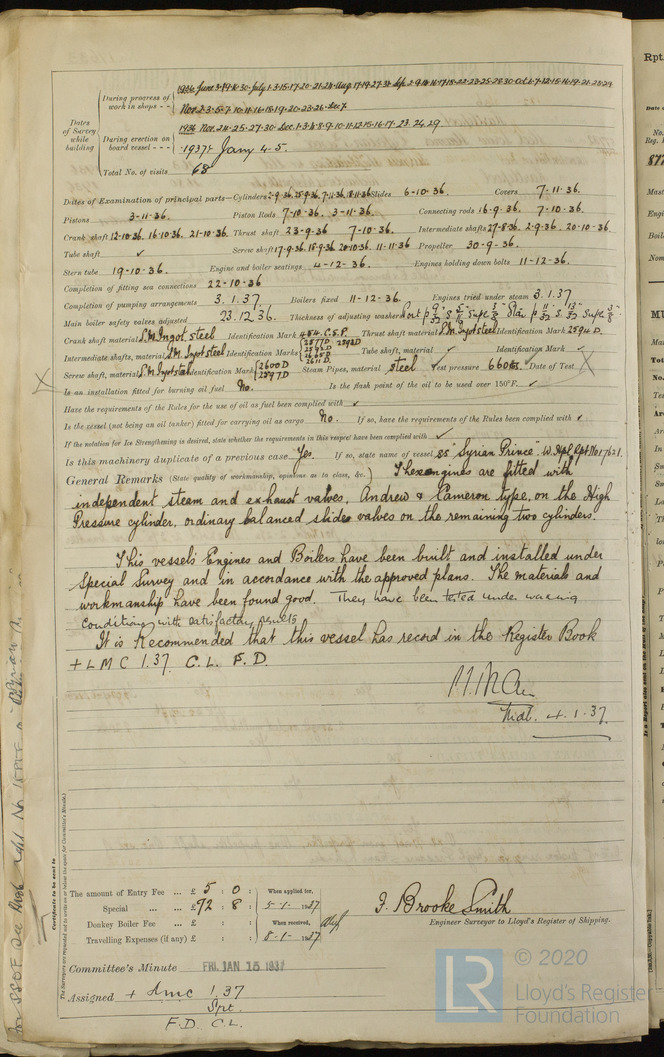 Dates of Survey while building
During progress of work in shops - - 1936 June 3·19·16·30· July 1·3·15·17·20·21·24· Aug. 17·19·27·31· Sep. 2·9·14·16·17·18·22·23·25·28·30· Oct. 6·7·12·15·16·19·21·23·29·
Nov. 2·3·5·7·10·11·16·18·19·20·23·26· Dec. 7
During erection on board vessel - - - 1936 Nov. 24·25·27·30· Dec. 1·3·4·8·9·10·11·12·15·16·17· 23· 24, 29
1937 Jany 4·5.
Total No. of visits 68
Dates of Examination of principal parts—Cylinders Slides 6-10-36. Covers 7-11-36.
Pistons 3-11-36. Piston Rods 7-10-36. 3-11-36. Connecting rods 16-9-36. 7-10-36.
Crank shaft 12-10-36. 16-10-36. 21-10-36. Thrust shaft 23-9-36 7-10-36. Intermediate shafts 27-8-36. 2-9-36. 20-10-36.
Tube shaft ✓ Screw shaft 17-9-36. 18-9-36 20-10-36. 11-11-36 Propeller 30-9-36.
Stern tube 19-10-36. Engine and boiler seatings 4-12-36. Engines holding down bolts 11-12-36.
Completion of fitting sea connections 22-10-36
Completion of pumping arrangements 3.1.37. Boilers fixed 11-12-36. Engines tried under steam 3.1.37
Main boiler safety valves adjusted 23.12.36. Thickness of adjusting washers Port P 9/32 S. 5/16 Sup. 3/8 Star. P 11/32 S. 13/32 Sup. 3/8
Crank shaft material S.M. Ingot steel Identification Mark 454.C.S.P. Thrust shaft material S.M. Ingot steel Identification Mark 2594 D.
Intermediate shafts, material S.M. Ingot steel Identification Marks 2577D 2592D 2611 D. Tube shaft, material ✓ Identification Mark ✓
Screw shaft, material S.M. Ingot steel Identification Mark 2600 D 2597D Steam Pipes, material Steel ✓ Test pressure 660 lbs ✓ Date of Test
Is an installation fitted for burning oil fuel No. Is the flash point of the oil to be used over 150°F. ✓
Have the requirements of the Rules for the use of oil as fuel been complied with ✓
Is the vessel (not being an oil tanker) fitted for carrying oil as cargo No. If so, have the requirements of the Rules been complied with ✓
If the notation for Ice Strengthening is desired, state whether the requirements in this respect have been complied with ✓
Is this machinery duplicate of a previous case Yes. If so, state name of vessel SS "Syrian Prince" W. Hpl Rpt No 17621.
General Remarks (State quality of workmanship, opinions as to class, &c.) These engines are fitted with
independent steam and exhaust valves, Andrew & Cameron type, on the High
Pressure cylinder, ordinary balanced slide valves on the remaining two cylinders.
This vessel's Engines and Boilers have been built and installed under
Special Survey and in accordance with the approved plans. The materials and
workmanship have been found good. They have been tested under working
conditions with satisfactory results
It is Recommended that this vessel has record in the Register Book
+ L M C 1.37. C.L. F.D.
Mdbr. 4.1.37.
The amount of Entry Fee ... £ 5 : 0 : When applied for,
Special ... ... £ 92 : 8 : 5-1-1937
Donkey Boiler Fee ... £ : : When received,
Travelling Expenses (if any) £ : : 8-1-1937
J. Brooke Smith
Engineer Surveyor to Lloyd's Register of Shipping.
Committee's Minute FRI. JAN 15 1937
Assigned + Lmc 1.37
Spt.
F.D. C.L.
Certificate to be sent to
The Surveyors are requested not to write on or below the space for Committee's Minute.
© 2020
LR
Lloyd's Register
Foundation
Rpt.